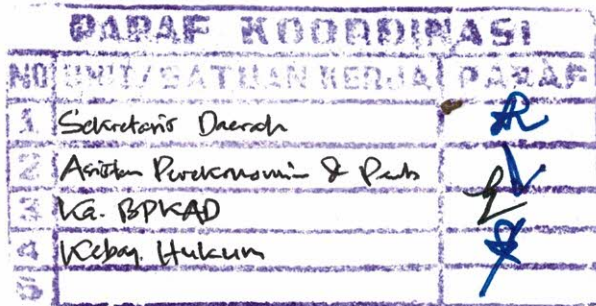 PARAF KOORDINASI
NO UNIT/SATUAN KERJA PARAF
1 Sekretaris Daerah
2 Asisten Perekonomian & Pemb
3 Ka. BPKAD
4 Kebag. Hukum
5